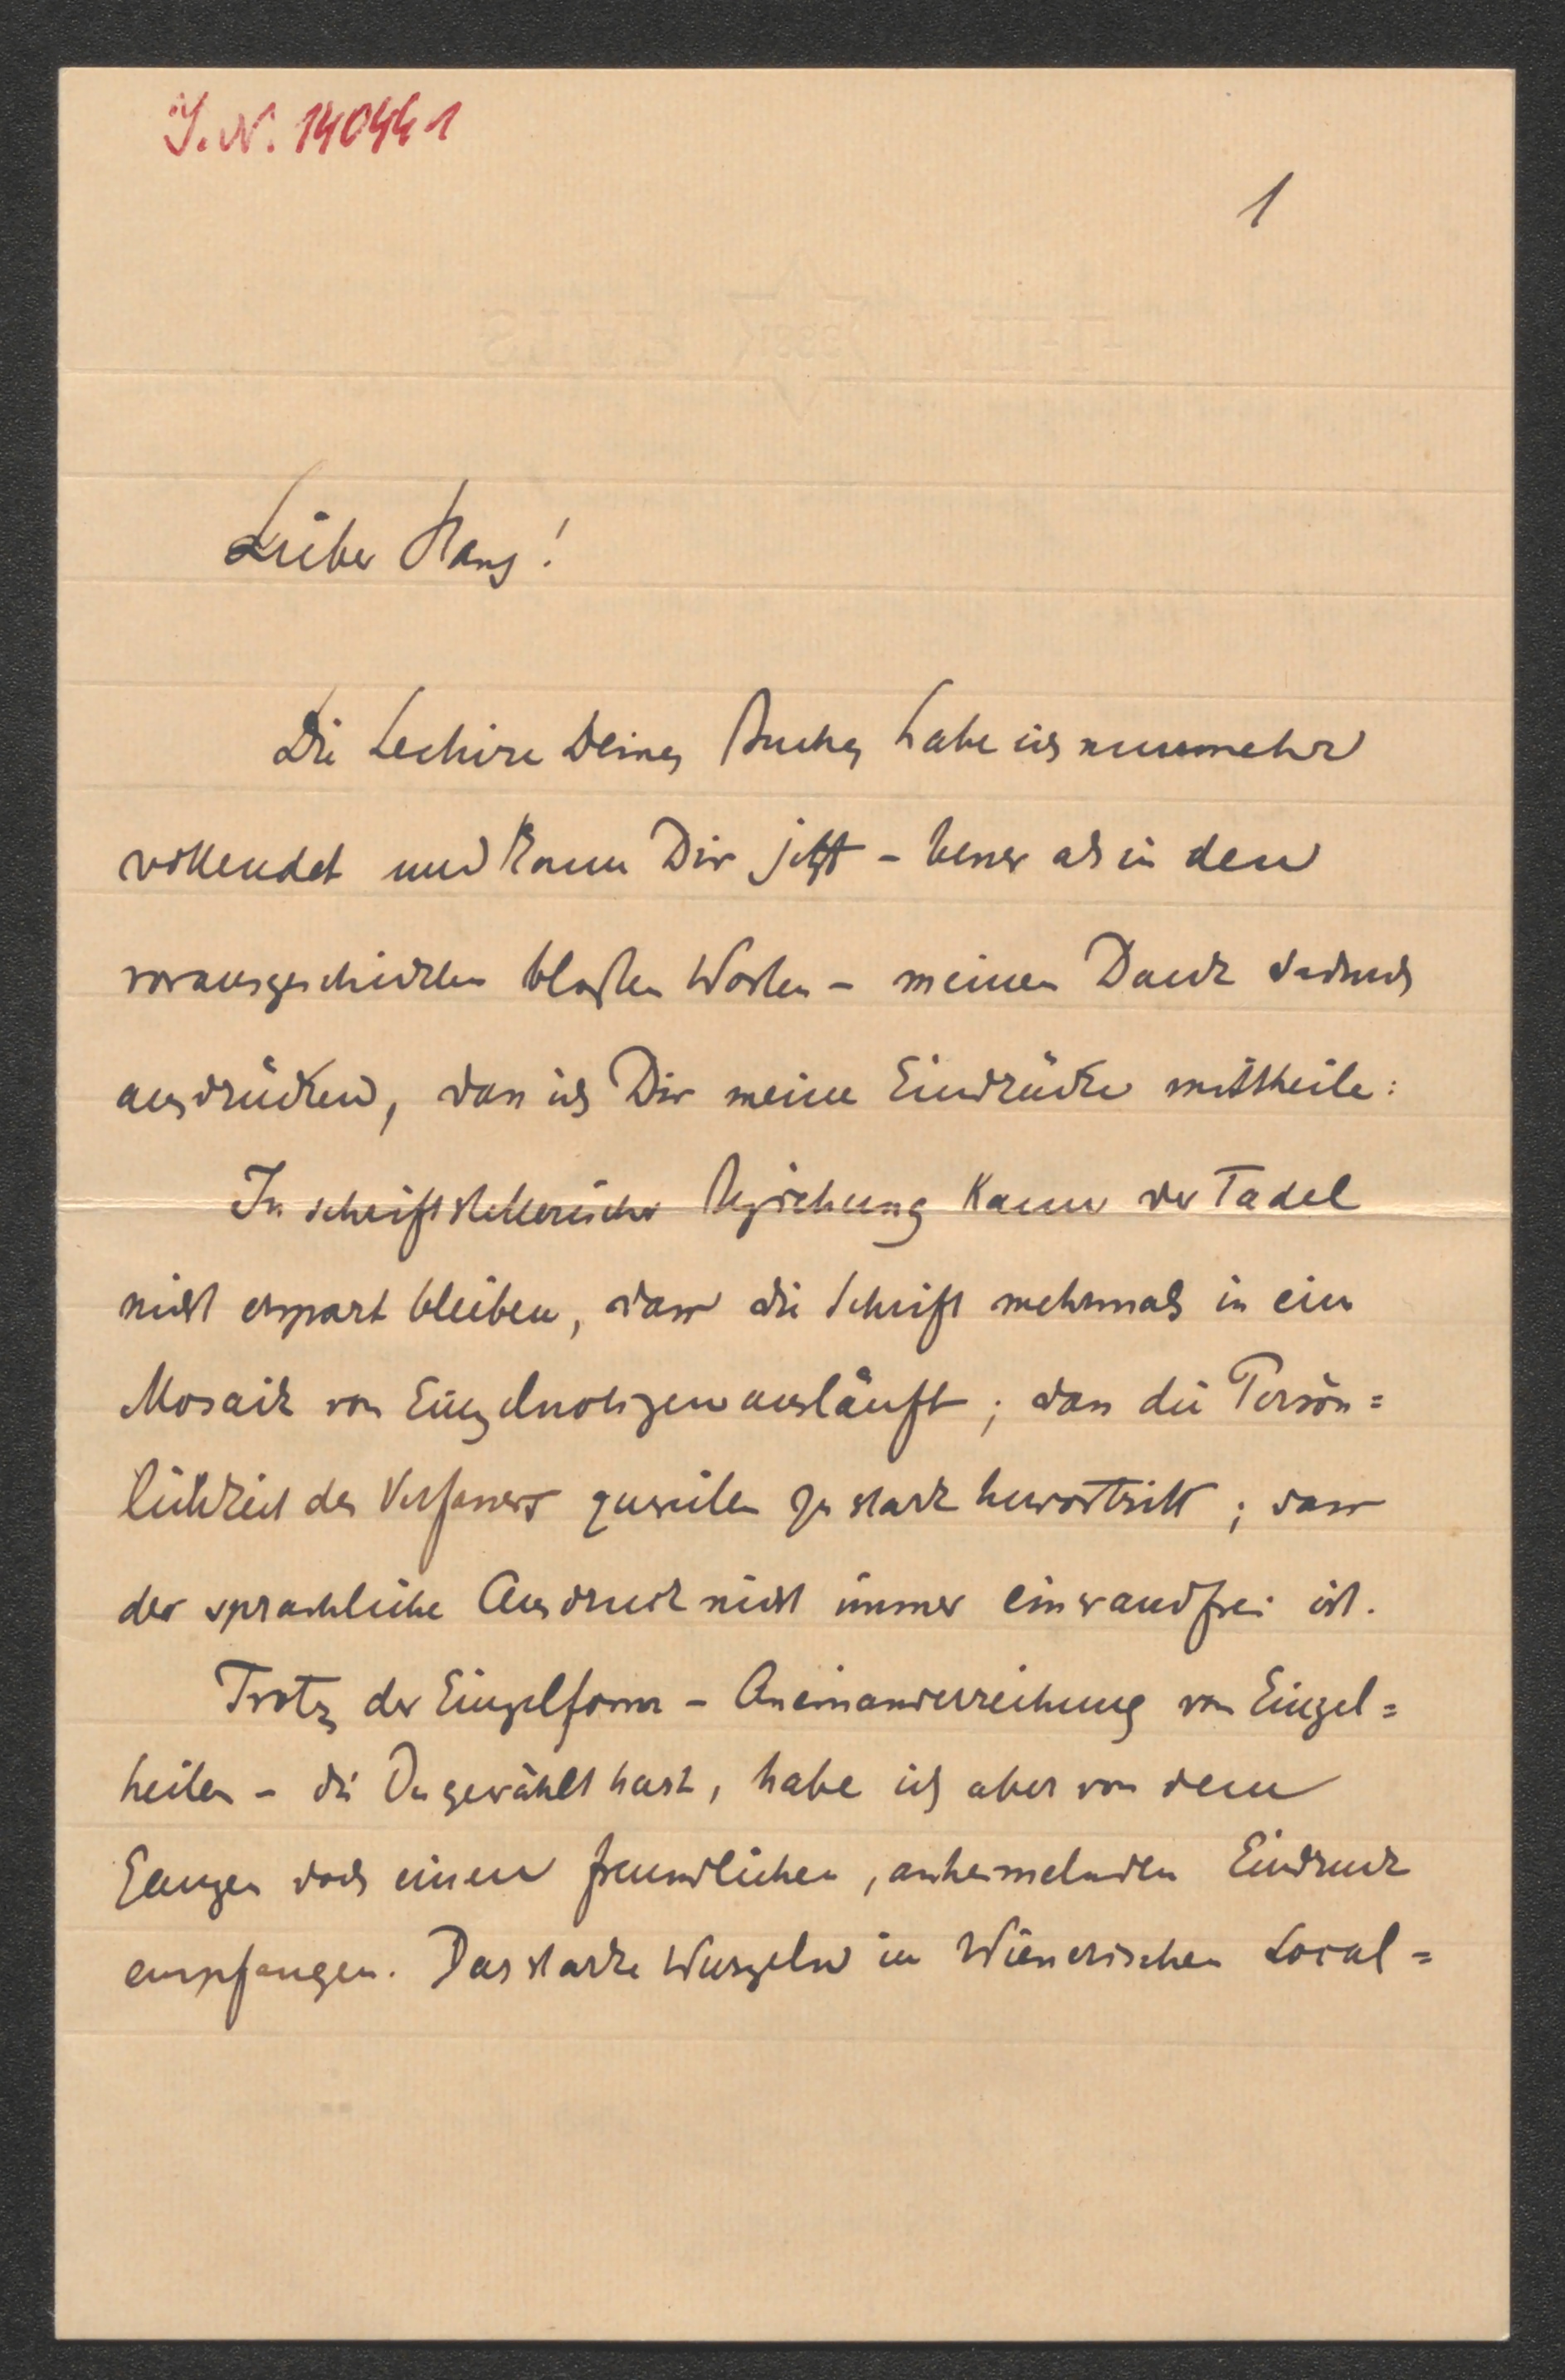 J. N. 140441
1
Lieber Hans!
Die Lectüre Deines Buches habe ich nunmehr
vollendet und kann Dir jetzt – besser als in den
vorausgeschickten bloßen Worten – meinen Dank dadurch
ausdrücken, dass ich Dir meine Eindrücke mittheile:
In schriftstellerischer Beziehung kann der Tadel
nicht erspart bleiben, dass die Schrift mehrmals in ein
Mosaik von Einzelnotizen ausläuft; dass die Persön=
lichkeit des Verfassers zuweilen zu stark hervortritt; dass
der sprachliche Ausdruck nicht immer einwandfrei ist.
Trotz der Einzelform – Aneinanderreihung von Einzel=
heiten – die Du gewählt hast, habe ich aber von dem
Ganzen doch einen freundlichen, anheimelnden Eindruck
empfangen. Das starke Wurzeln im Wienerischen Local=